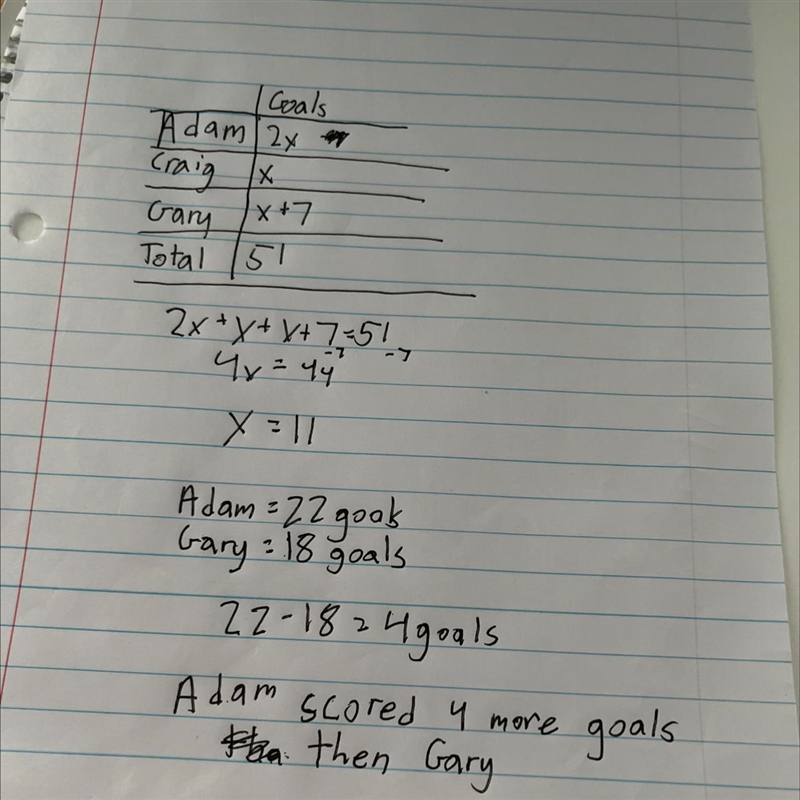 Goals
Adam 2x
Craig x
Gary x+7
Total 51
2x+x+x+7=51
-7 -7
4x=44
x=11
Adam=22 goals
Gary=18 goals
22-18=4goals
Adam scored 4 more goals
then Gary